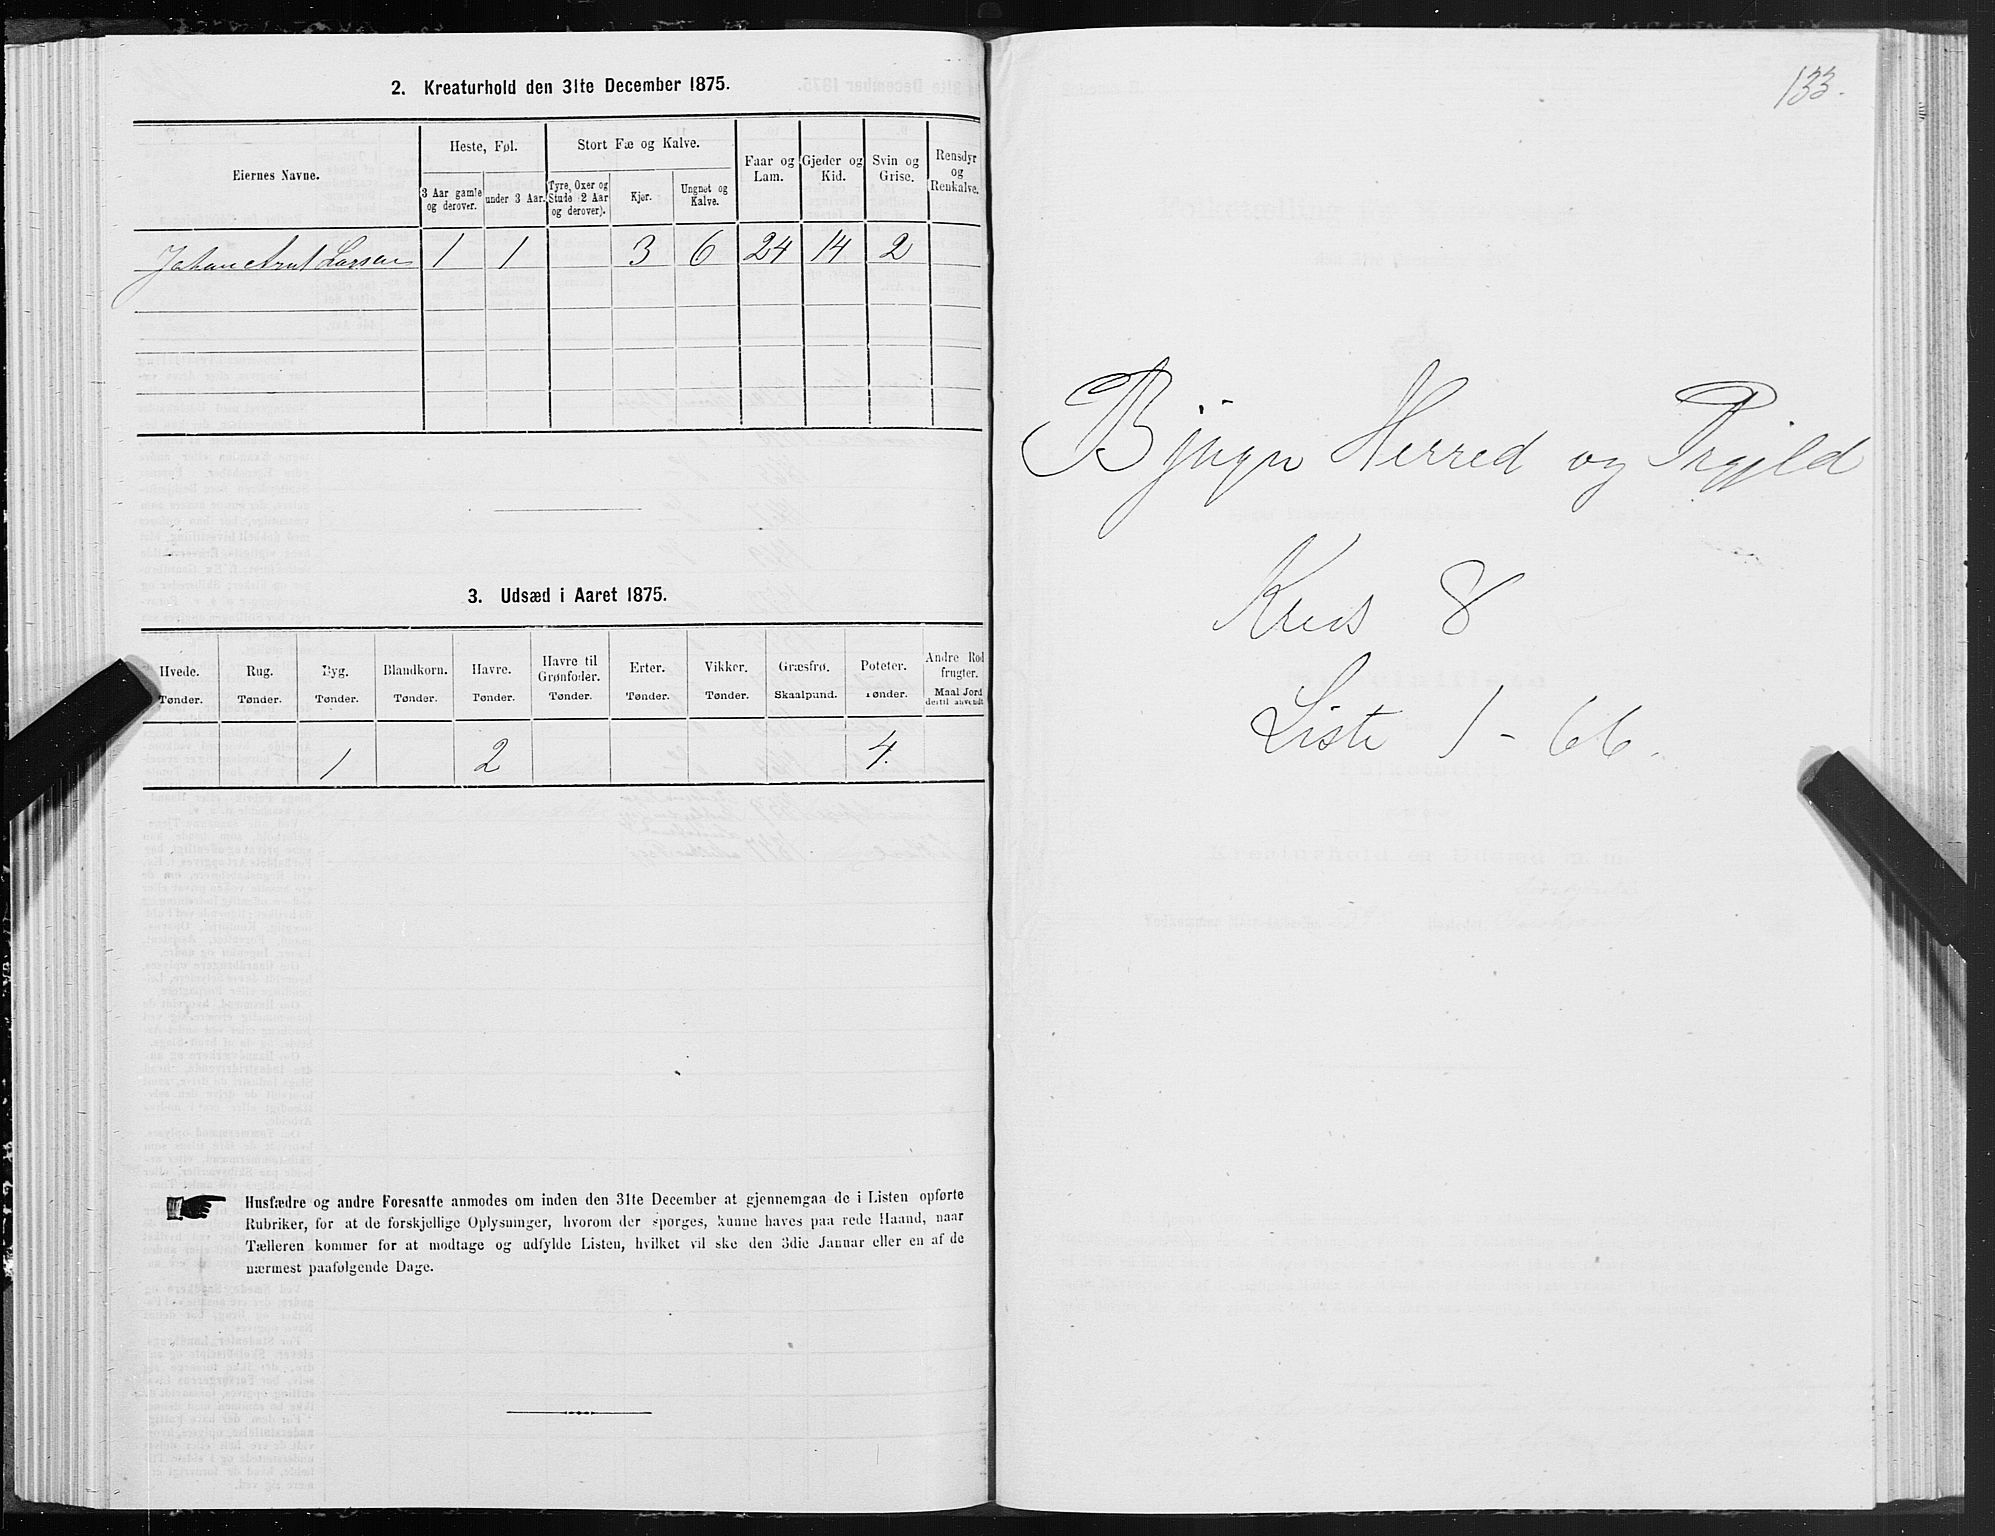 2. Kreaturhold den 31te December 1875.
Eiernes Navne.
Heste, Føl.
Stort Fæ og Kalve.
Faar og Lam.
Gjeder og Kid.
Svin og Grise.
Rensdyr og Renkalve.
3 Aar gamle og derover.
under 3 Aar.
Tyre, Oxer og Stude (2 Aar og derover).
Kjør.
Ungnøt og Kalve.
Johan Arnt Larsen 1 1 3 6 24 14 2
3. Udsæd i Aaret 1875.
Hvede. Rug. Byg. Blandkorn. Havre. Havre til Grønfoder. Erter. Vikker. Græsfrø. Poteter. Andre Rodfrugter.
Tønder. Tønder. Tønder. Tønder. Tønder. Tønder. Tønder. Tønder. Skaalpund. Tønder. Maal Jord dertil anvendt
1 2 4.
Husfædre og andre Foresatte anmodes om inden den 31te December at gjennemgaa de i Listen opførte
Rubriker, for at de forskjellige Oplysninger, hvorom der spørges, kunne haves paa rede Haand, naar
Tælleren kommer for at modtage og udfylde Listen, hvilket vil ske den 3die Januar eller en af de
nærmest paafølgende Dage.
133.
Bjugn Herred og Prgjeld
Kreds 8
Liste 1-66.